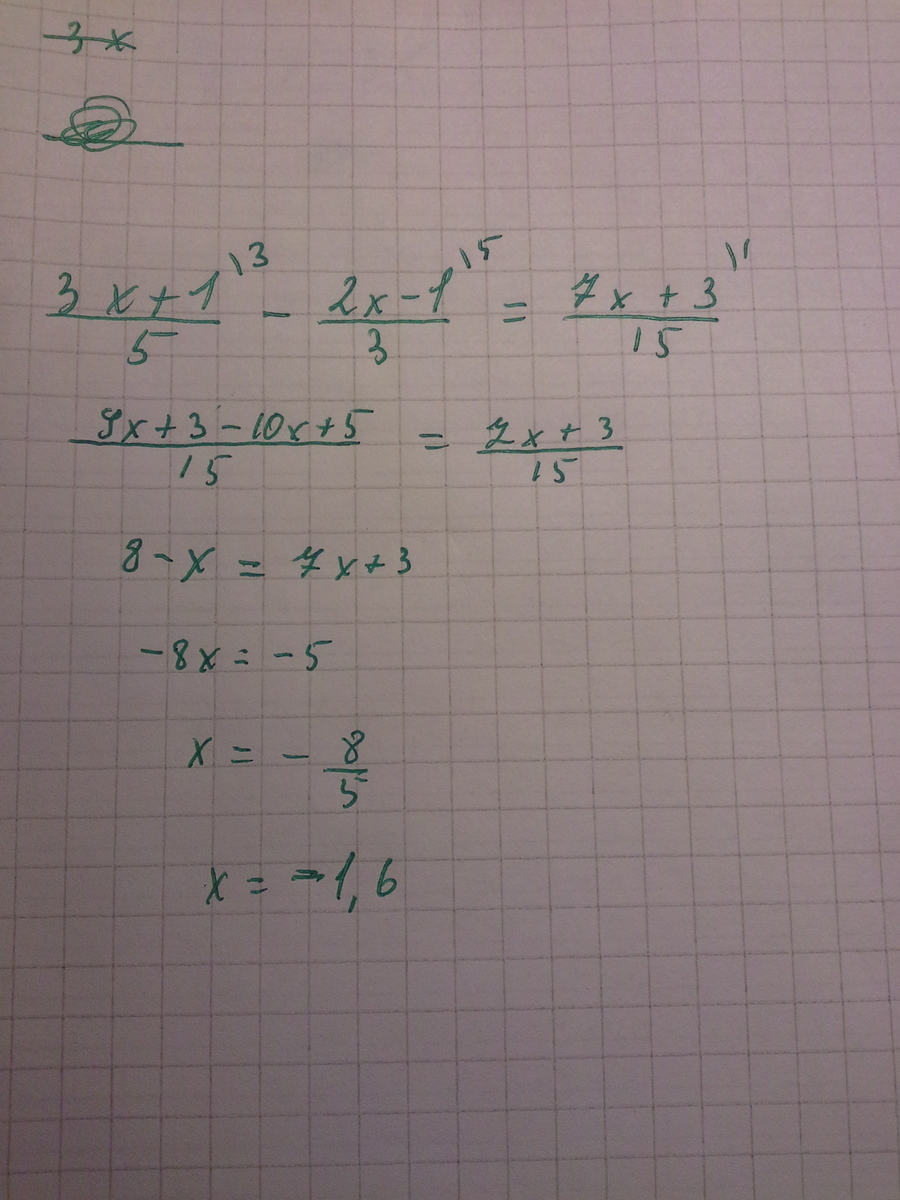 3x
3x+1\3/5 - 2x-1\5/3 = 7x+3\1/15
9x+3-10x+5/15 = 7x+3/15
8-x = 7x+3
-8x = -5
x = - 8/5
x = -1,6